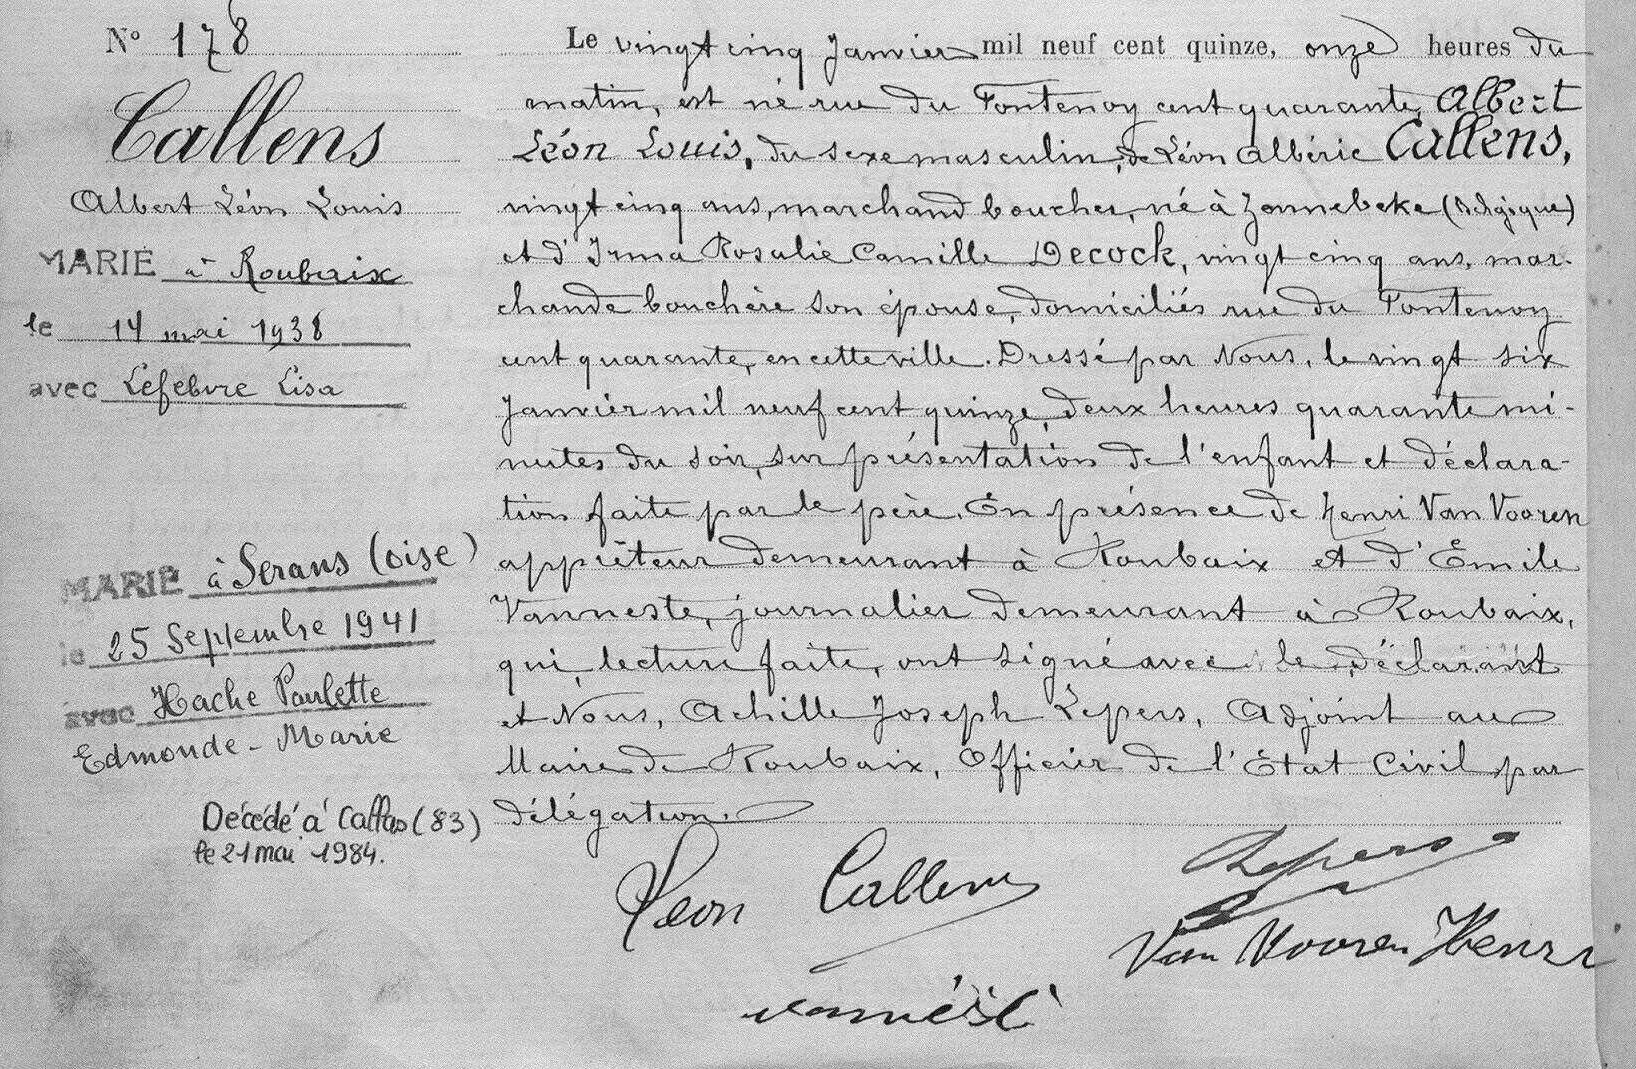 N° 178
Callens
Albert Léon Louis
MARIÉ à Roubaix
le 14 mai 1938
avec Lefebvre Lisa
MARIÉ à Serans (Oise)
le 25 Septembre 1941
avec Hache Paulette
Edmonde-Marie
Décédé à Callas (83)
le 21 mai 1984.
Le vingt cinq Janvier mil neuf cent quinze, onze heures du
matin, est né rue du Fontenoy cent quarante, Albert
Léon Louis, du sexe masculin, de Léon Albéric Callens,
vingt cinq ans, marchand boucher, né à Zonnebeke (Belgique)
et d'Irma Rosalie Camille Decock, vingt cinq ans, mar-
chande bouchère son épouse, domiciliés rue du Fontenoy
cent quarante, en cette ville. Dressé par Nous, le vingt six
Janvier mil neuf cent quinze, deux heures quarante mi-
nutes du soir, sur présentation de l'enfant et déclara-
tion faite par le père. En présence de Henri Van Vooren
apprêteur demeurant à Roubaix et d'Émile
Vanneste, journalier demeurant à Roubaix,
qui, lecture faite, ont signé avec le déclarant
et Nous, Achille Joseph Lepers, Adjoint au
Maire de Roubaix, Officier de l'État Civil par
délégation.
Léon Callens
Lepers
Van Vooren Henri
Vanneste